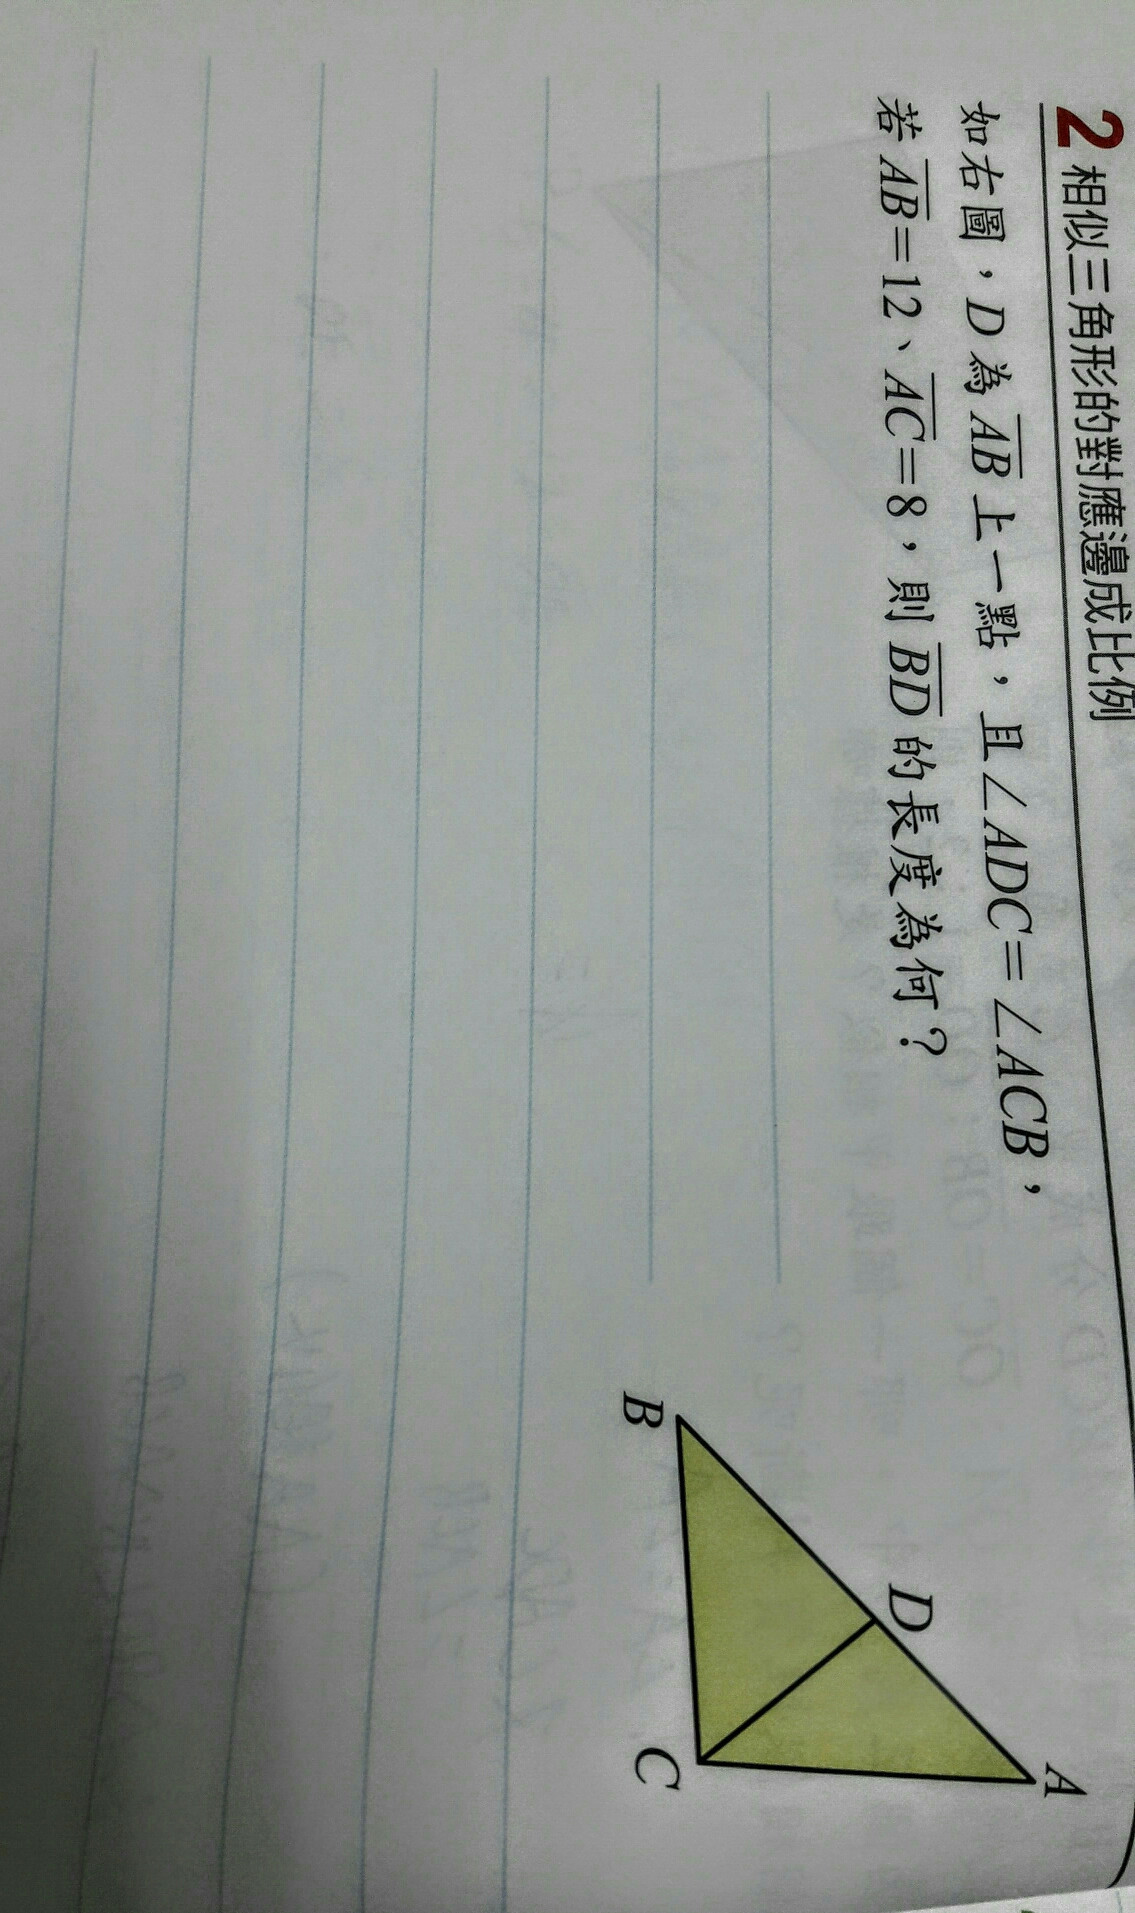 2 相似三角形的對應邊成比例
如右圖，D 為 AB 上一點，且∠ADC=∠ACB，
若 AB=12、AC=8，則 BD 的長度為何？
A
D
B
C